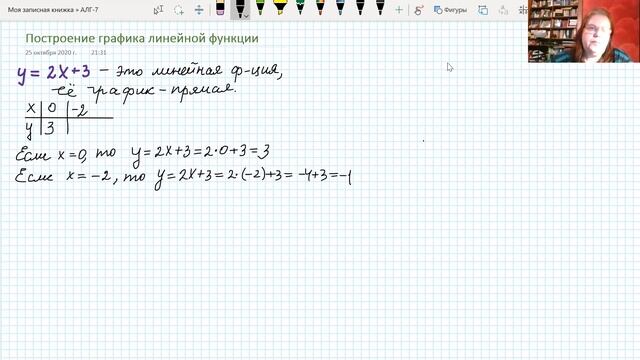 Моя записная книжка » АЛГ-7
Фигуры
Построение графика линейной функции
25 октября 2020 г. 21:31
y = 2x+3 – это линейная ф-ция,
её график – прямая.
x | 0 | -2
y | 3 |
Если x=0, то y=2x+3=2·0+3=3
Если x=-2, то y=2x+3=2·(-2)+3=-4+3=-1